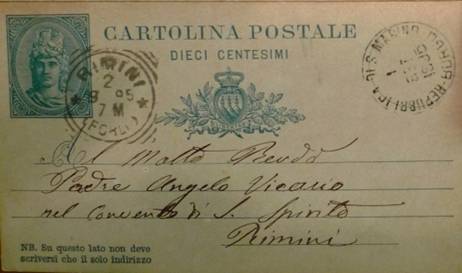 CARTOLINA POSTALE
DIECI CENTESIMI
RIMINI
2
9 95
7 M
(FORLI)
REPUBBLICA DI S. MARINO
Al Molto Revdo
Padre Angelo Vicario
nel Convento di S. Spirito
Rimini
NB. Su questo lato non deve
scriversi che il solo indirizzo